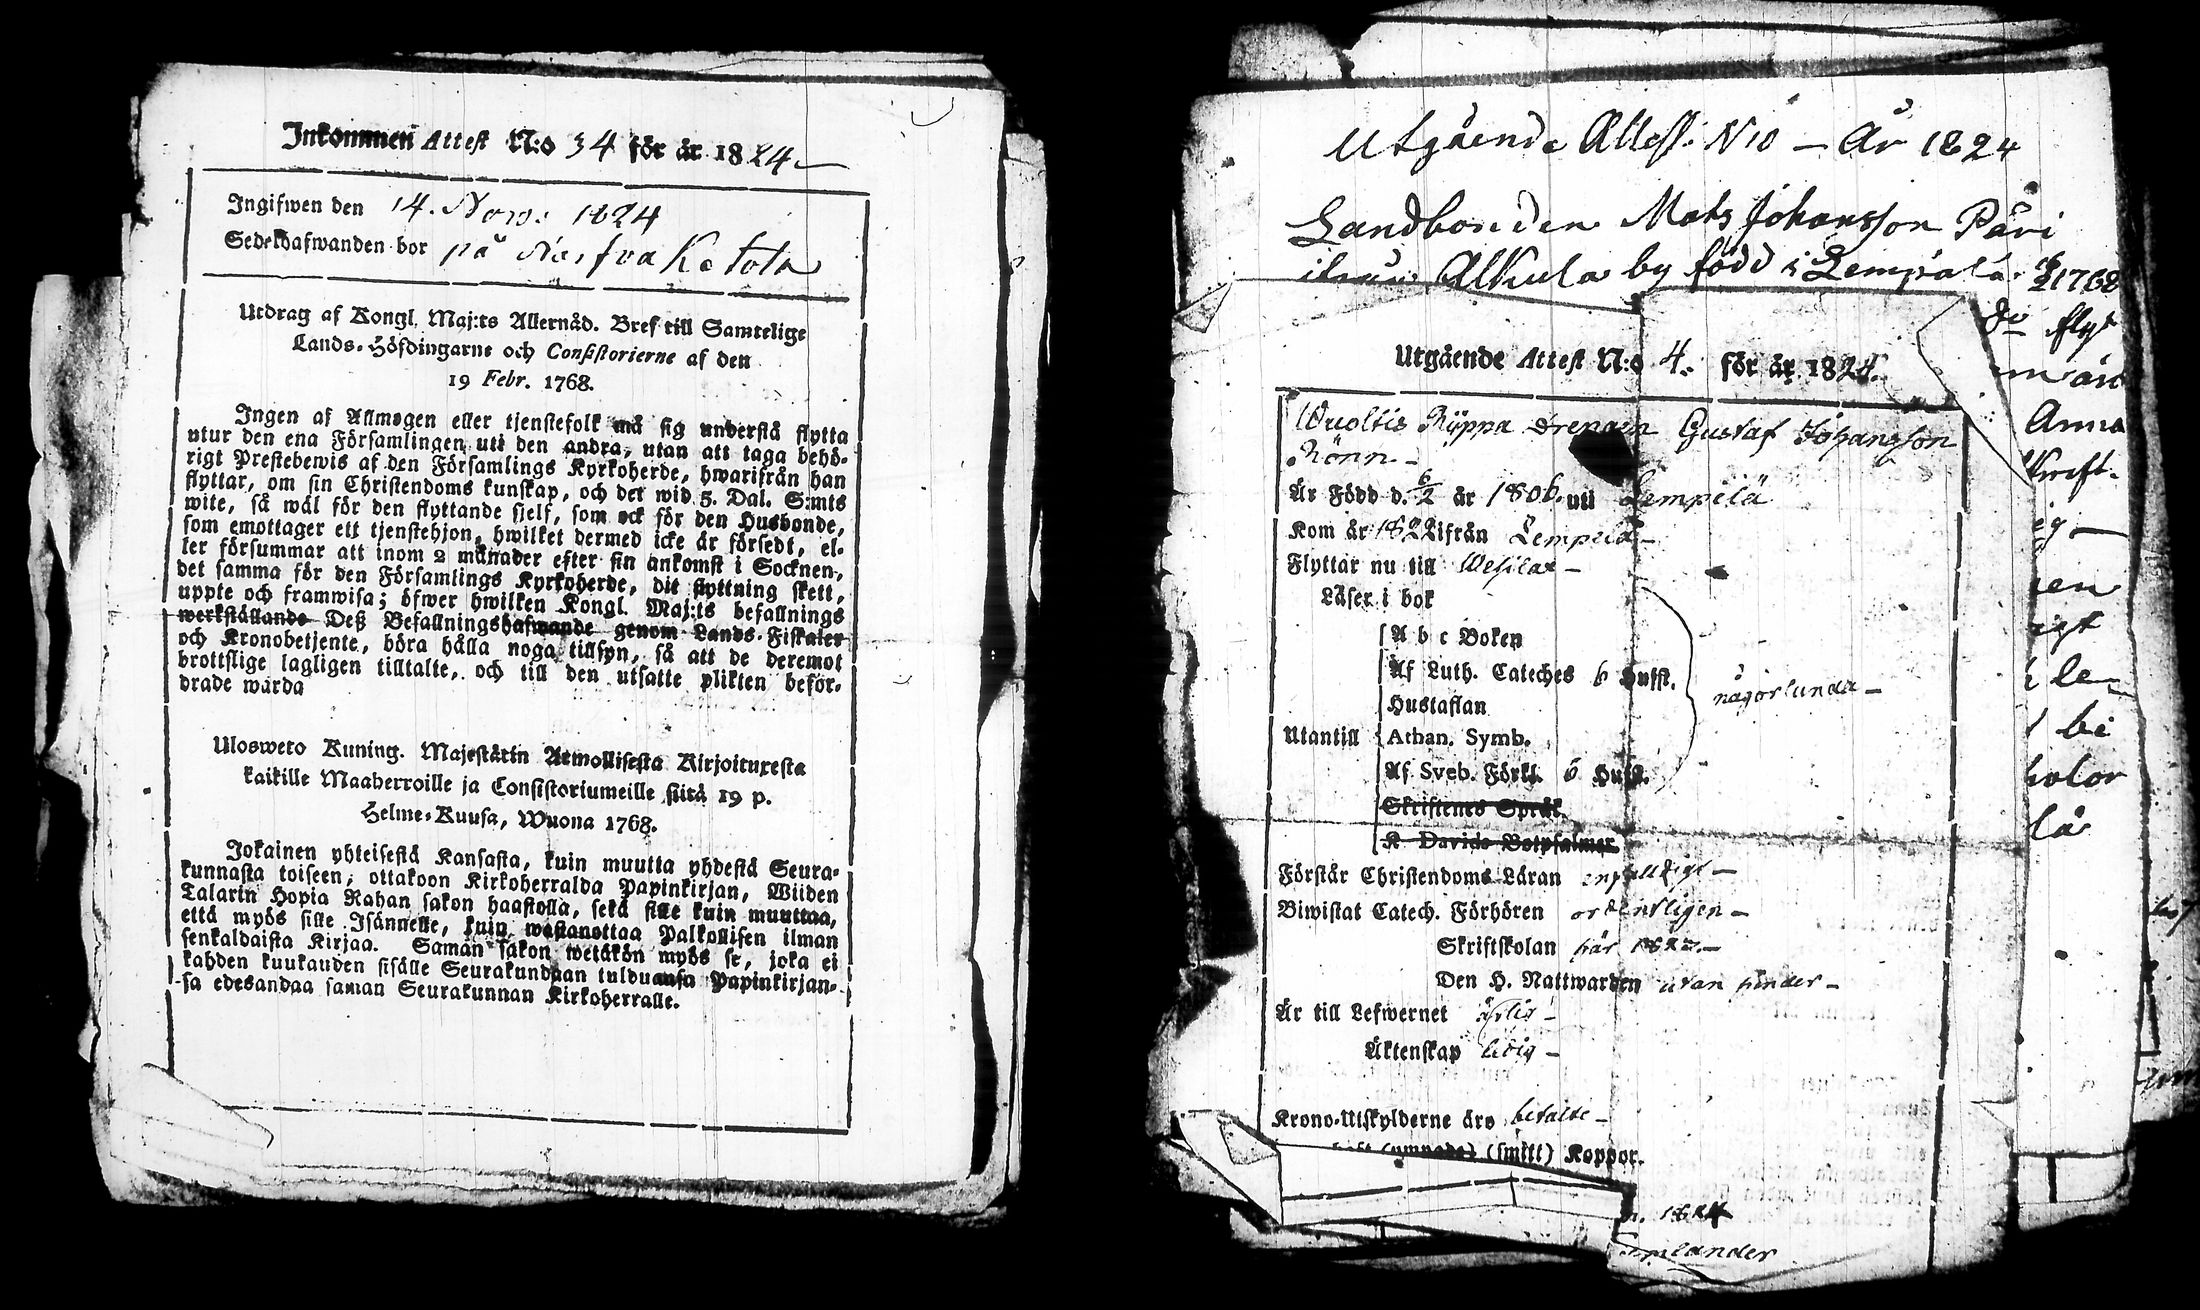 Inkommen Attest N:o 34 för år 1824
Ingifwen den 14. Novr. 1824
Sedelhafwanden bor på Ketola
Utdrag af Kongl. Maj:ts Allernåd. Bref till Samtelige
Lands-Höfdingarne och Consistorierne af den
19 Febr. 1768.
Ingen af Allmogen eller tjenstefolk må sig understå flytta
utur den ena Församlingen uti den andra, utan att taga behö-
rigt Prestebewis af den Församlings Kyrkoherde, hwarifrån han
flyttar, om sin Christendoms kunskap, och det wid 5. Dal. S:mts
wite, så wäl för den flyttande sjelf, som ock för den Husbonde,
som emottager ett tjenstehjon, hwilket dermed icke är försedt, el-
ler försummar att inom 2 månader efter sin ankomst i Socknen,
det samma för den Församlings Kyrkoherde, dit flyttning skett,
uppte och framwisa; öfwer hwilken Kongl. Maj:ts befallnings
werkställande Deß Befallningshafwande genom Lands-Fiskaler
och Kronobetjente, böra hålla noga tillsyn, så att de deremot
brottslige lagligen tilltalte, och till den utsatte plikten befor-
drade warda
Ulosweto Kuning. Majestätin Armollisesta Kirjoituxesta
kaikille Maaherroille ja Consistoriumeille siitä 19 p.
Helme-Kuusa, Wuona 1768.
Jokainen yhteisestä Kansasta, kuin muutta yhdestä Seura-
kunnasta toiseen, ottakoon Kirkoherralda Papinkirjan, Wiiden
Talarin Hopia Rahan sakon haastolla, sekä sille kuin muuttaa,
että myös sille Isännelle, kuin wastanottaa Palkollisen ilman
senkaldaista Kirjaa. Saman sakon wetäkön myös se, joka ei
kahden kuukauden sisälle Seurakundaan tulduansa Papinkirjan-
sa edesandaa saman Seurakunnan Kirkoherralle.
Utgående Attest N10 – År 1824
Landbonden Mats Johansson Päri
Alkula by född i Lempälä 1768
do flyt
Anna
Utgående Attest N:o 4. för år 1824.
Wuoltis Ryppa Drengen Gustaf Johansson
Rönn –
Är Född d. 6/2 år 1806. uti Lempälä
Kom år 1822 ifrån Lempälä –
Flyttar nu till Wesilax –
Läser i bok
A b c Boken
Af Luth. Cateches 6 Hufst.
Hustaflan
någorlunda –
Utantill Athan. Symb.
Af Sveb. Förkl. 6 Hufst.
Skriftenes Språk
K Davids Botpsalmer
Förstår Christendoms Läran enfaldigt –
Biwistat Catech. Förhören ordentligen –
Skriftskolan här 1822. –
Den H. Nattwarden utan hinder –
Är till Lefwernet ärlig –
Äktenskap ledig –
Krono-Utskylderne äro betalte –
haft (ympade) (smitt) Koppor.
1824